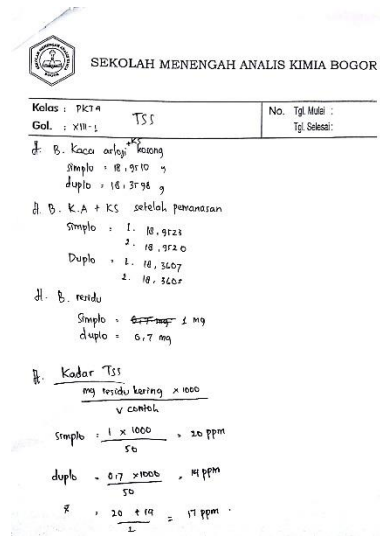 SEKOLAH MENENGAH ANALIS KIMIA BOGOR
Kelas : PKT 9
Gol. : XIII-1
TSS
No. Tgl. Mulai :
Tgl. Selesai:
B. Kaca arloji +KS kosong
Simplo = 18,9510 g
duplo = 18,3598 g
B. K.A + KS setelah pemanasan
Simplo : 1. 18,9523
2. 18,9520
Duplo : 1. 18,3607
2. 18,3605
B. residu
Simplo = 0,7 mg 1 mg
duplo = 0,7 mg
Kadar TSS
mg residu kering × 1000
V contoh
Simplo = 1 × 1000 = 20 ppm
50
duplo = 0,7 × 1000 = 14 ppm
50
= 20 + 14 = 17 ppm
2